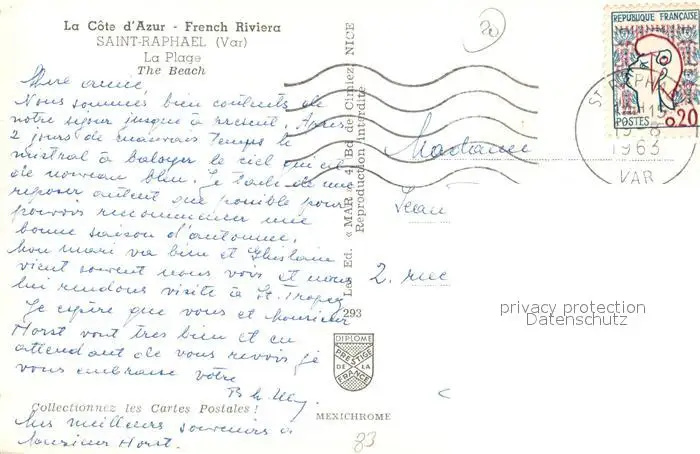 La Côte d'Azur - French Riviera
SAINT-RAPHAEL (Var)
La Plage
The Beach
Chère amie,
Nous sommes bien contents de
notre séjour jusque à présent. Après
2 jours de mauvais temps le
mistral à balayer le ciel qui est
de nouveau bleu. Je tache de me
reposer autant que possible pour
pouvoir recommencer une
bonne saison d'automne.
Mon mari va bien et Ghislain
vient souvent nous voir et nous
lui rendons visite à St. Tropez
Je espère que vous et Monsieur
Horst vont très bien et en
attendant de vous revoir je
vous embrasse votre
Collectionnez les Cartes Postales !
Mes meilleurs souvenirs à
Monsieur Horst.
Les Ed. « MAR », 41 Bd de Cimiez, NICE
Reproduction Interdite
293
DIPLOME
PRESTIGE
DE LA
FRANCE
MEXICHROME
83
20
REPUBLIQUE FRANÇAISE
POSTES
0,20
ST RAPHAEL
19-8
1963
VAR
Madame
Jean
2. rue
privacy protection
Datenschutz